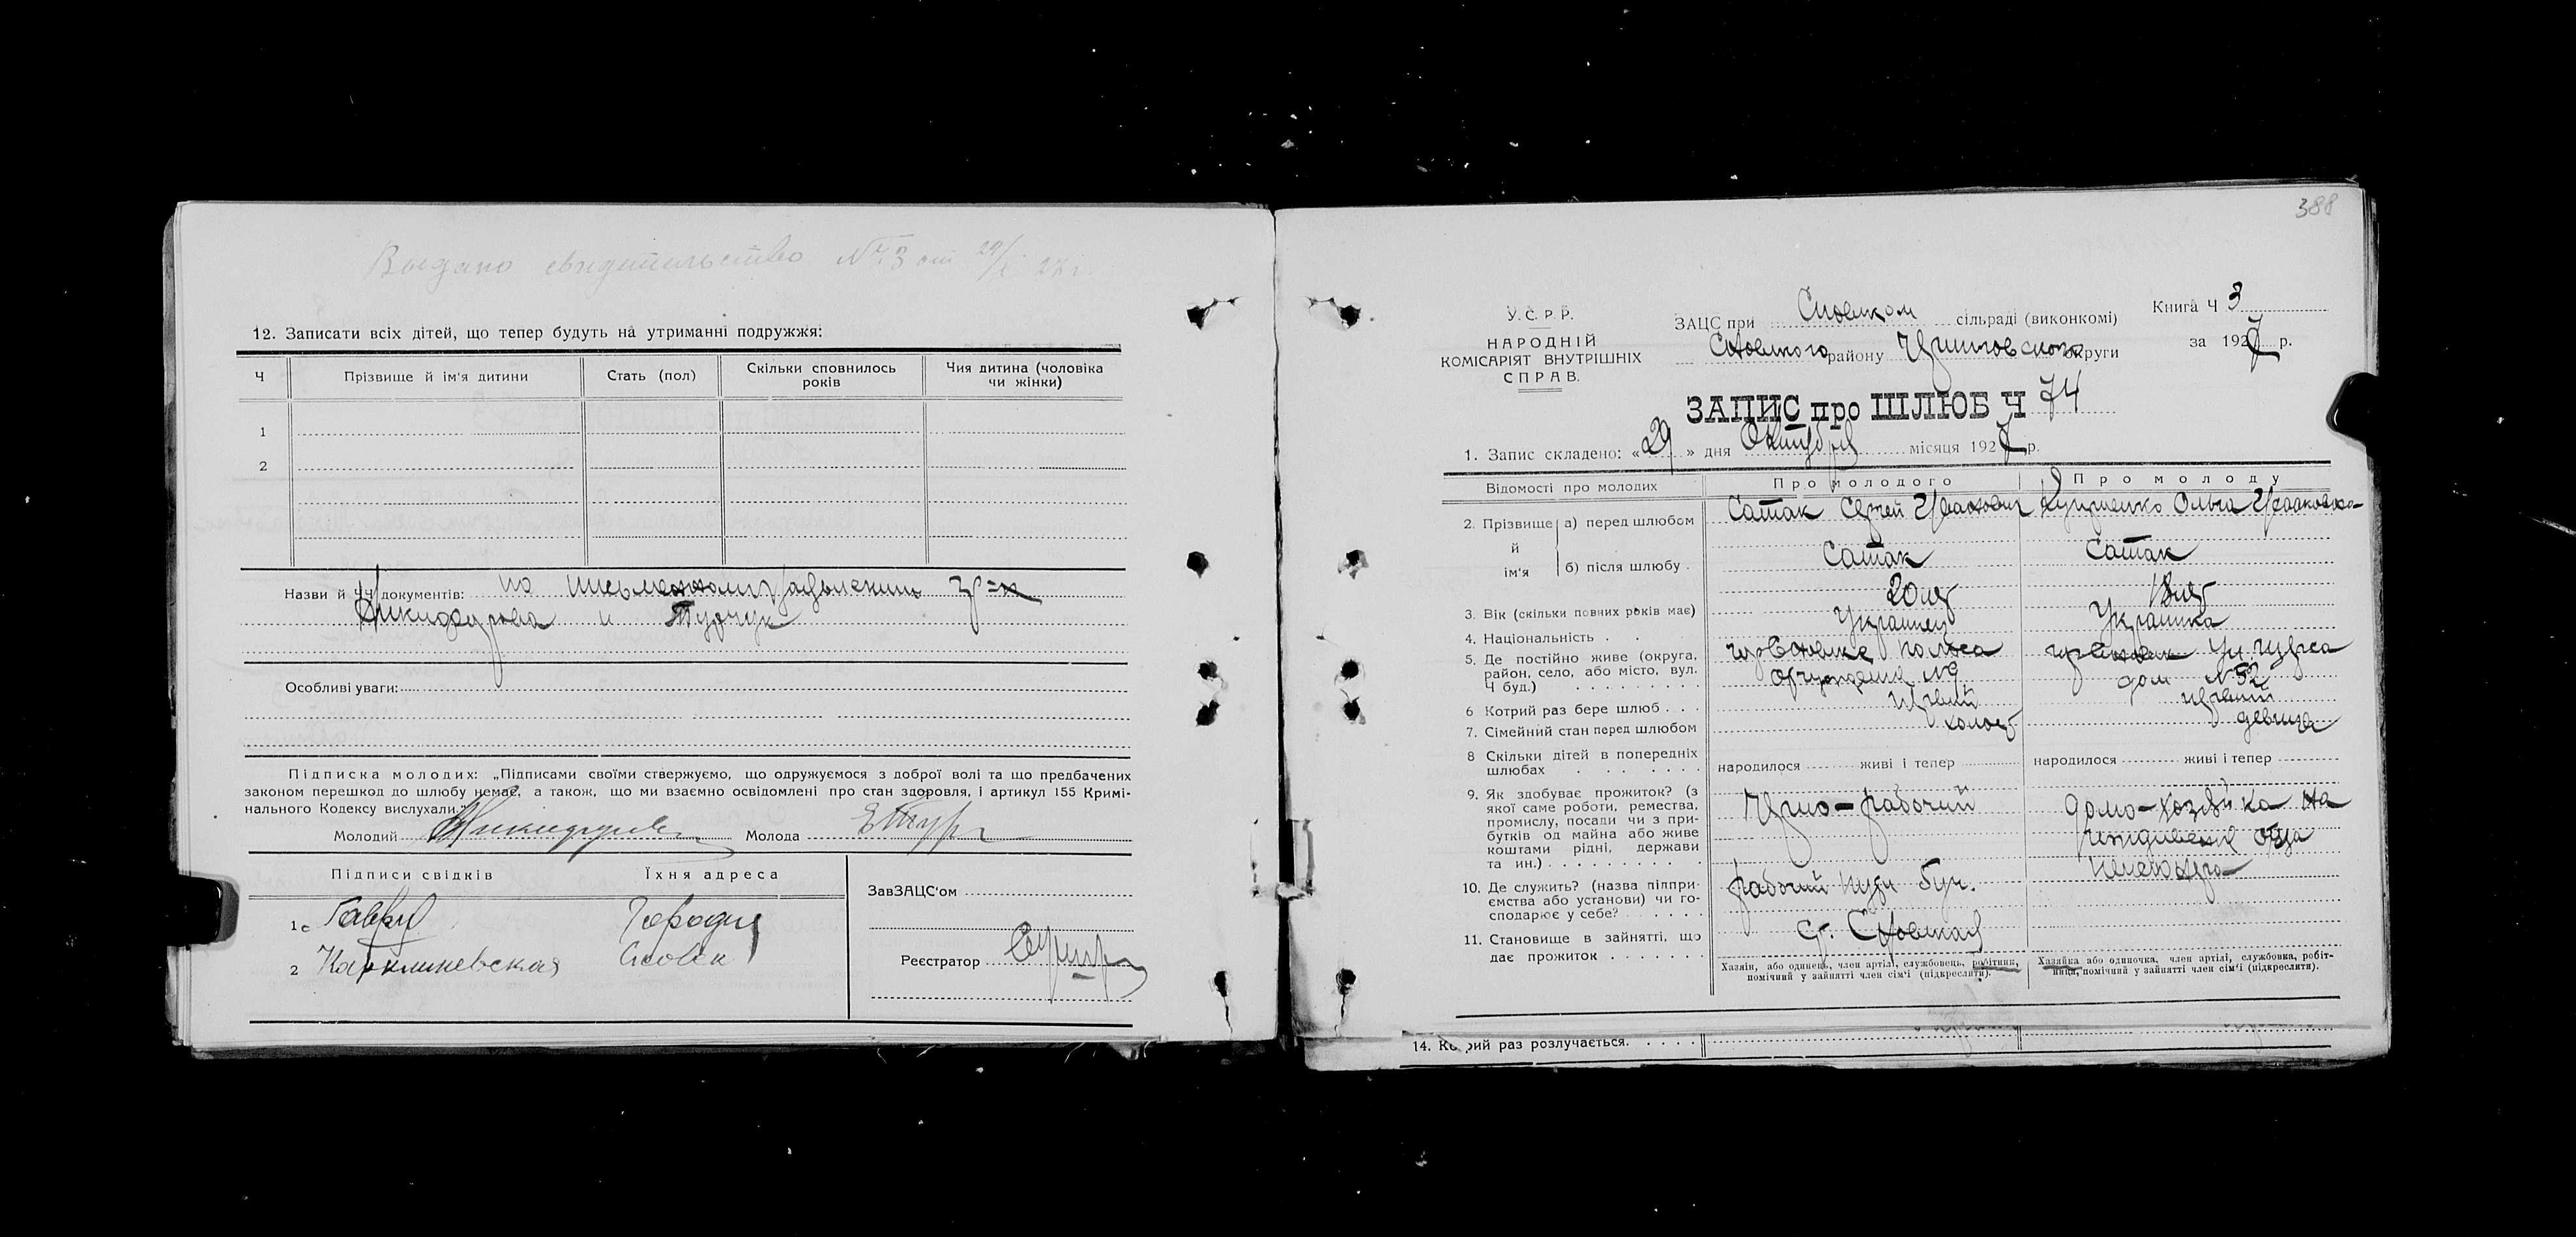 Выдано свидетельство № 73 от 29/X 27 г.
12. Записати всіх дітей, що тепер будуть на утриманні подружжя:
Ч Прізвище й ім'я дитини Стать (пол) Скільки сповнилось років Чия дитина (чоловіка чи жінки)
1
2
Назви й ЧЧ документів: по
и
Особливі уваги:
Підписка молодих: „Підписами своїми стверджуємо, що одружуємося з доброї волі та що предбачених
законом перешкод до шлюбу немає, а також, що ми взаємно освідомлені про стан здоровля, і артикул 155 Кримі-
нального Кодексу вислухали."
Молодий Молода
Підписи свідків Їхня адреса
1
2
Сновск
ЗавЗАЦС'ом
Реєстратор
388
У.С.Р.Р.
НАРОДНІЙ
КОМІСАРІЯТ ВНУТРІШНІХ
СПРАВ.
ЗАЦС при сільраді (виконкомі)
Сновского району округи
Книга Ч 3
за 1927 р.
ЗАПИС про ШЛЮБ Ч 74
1. Запис складено: « 29 » дня Октября місяця 1927 р.
Відомості про молодих Про молодого Про молоду
2. Прізвище й ім'я
а) перед шлюбом Саток Сергей Иванович Куприенко Ольга
б) після шлюбу Саток Саток
3. Вік (скільки повних років має) 20 лет лет
4. Національність Украинец Украинка
5. Де постійно живе (округа,
район, село, або місто, вул.
Ч буд.)
№ 9
дом №
6 Котрий раз бере шлюб первый первый
7. Сімейний стан перед шлюбом холост девица
8 Скільки дітей в попередніх
шлюбах народилося живі і тепер народилося живі і тепер
9. Як здобуває прожиток? (з
якої саме роботи, ремества,
промислу, посади чи з при-
бутків од майна або живе
коштами рідні, держави
та ин.)
рабочий
домо-хозяйка на
иждивении отца
10. Де служить? (назва підпри-
ємства або установи) чи го-
сподарює у себе?
рабочий
ст. Сновская
11. Становище в зайнятті, що
дає прожиток
Хазяїн, або одинець, член артілі, службовець, робітник,
помічний у зайнятті член сім'ї (підкреслити).
Хазяйка або одиночка, член артілі, службовка, робіт-
ниця, помічний у зайнятті член сім'ї (підкреслити).
14. Котрий раз розлучається.